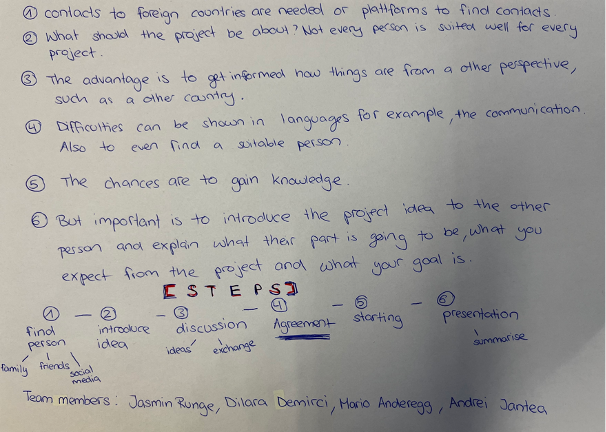 ① contacts to foreign countries are needed or plattforms to find contacts.
② What should the project be about? Not every person is suited well for every
project.
③ The advantage is to get informed how things are from a other perspective,
such as a other country.
④ Difficulties can be shown in languages for example, the communication.
Also to even find a suitable person.
⑤ The chances are to gain knowledge.
⑥ But important is to introduce the project idea to the other
person and explain what their part is going to be, what you
expect from the project and what your goal is.
[STEPS]
① – ② – ③ – ④ – ⑤ – ⑥
find introduce discussion Agreement starting presentation
person idea ideas exchange summarise
family friends social
media
Team members: Jasmin Runge, Dilara Demirci, Mario Anderegg, Andrei Jantea